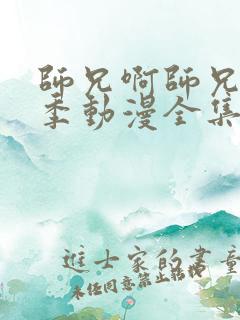 師兄啊師兄
季動漫全集
進士家的書童
未任同意禁止轉投